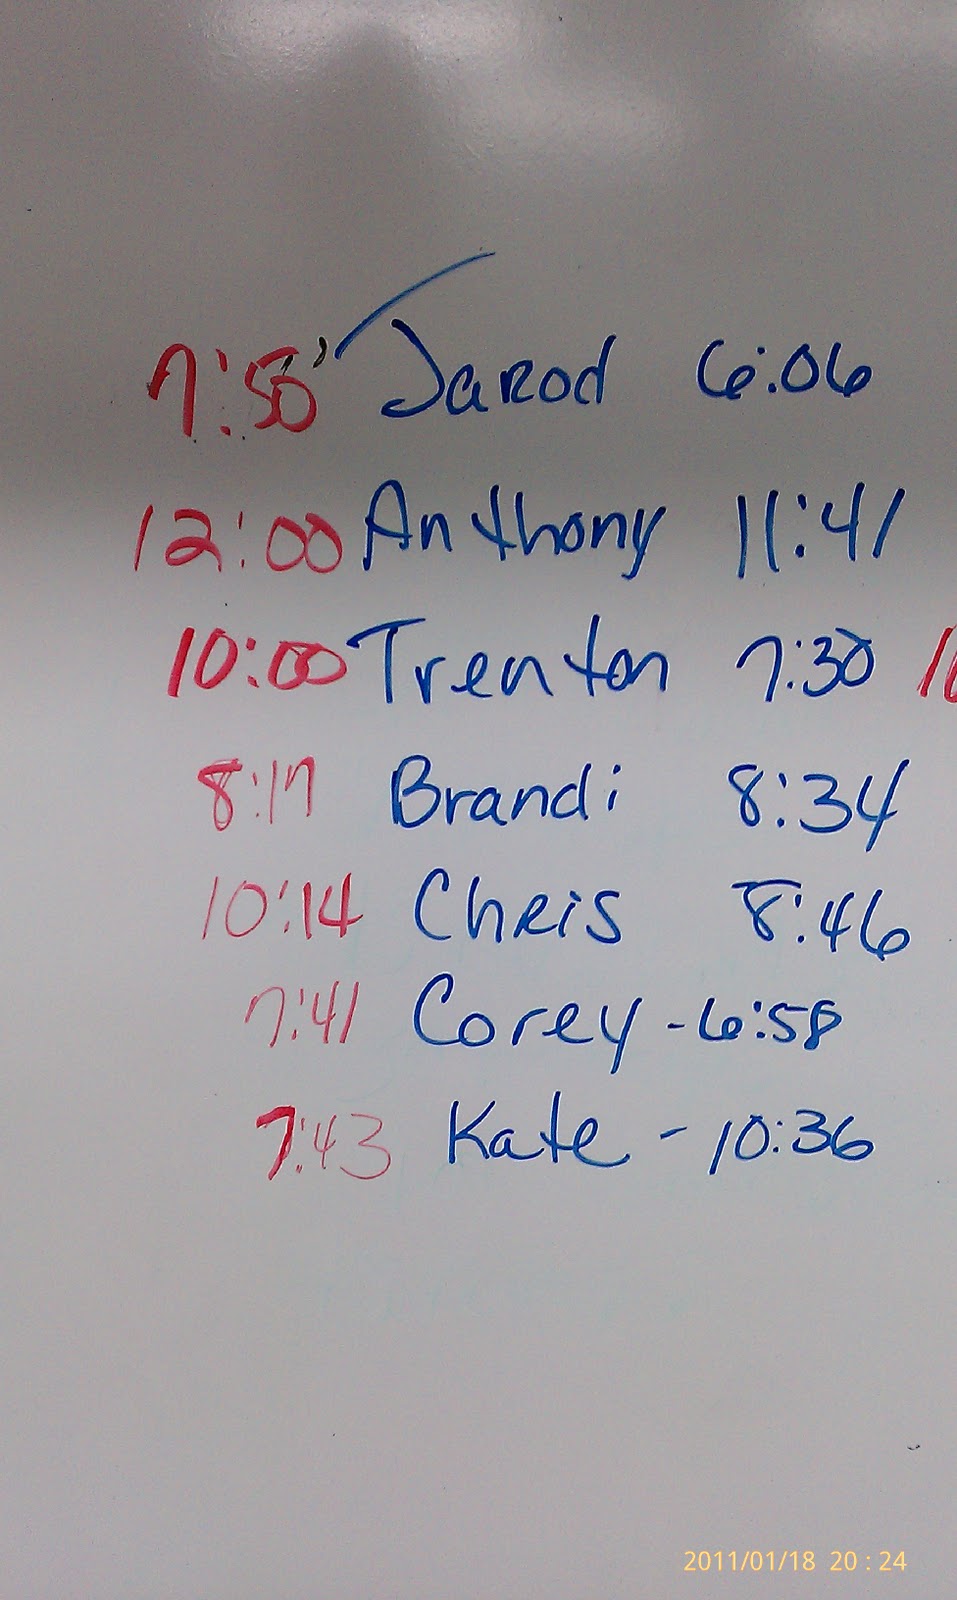 7:50 Jarod 6:06
12:00 Anthony 11:41
10:00 Trenton 7:30
8:17 Brandi 8:34
10:14 Chris 8:46
7:41 Corey - 6:58
7:43 Kate - 10:36
2011/01/18 20:24